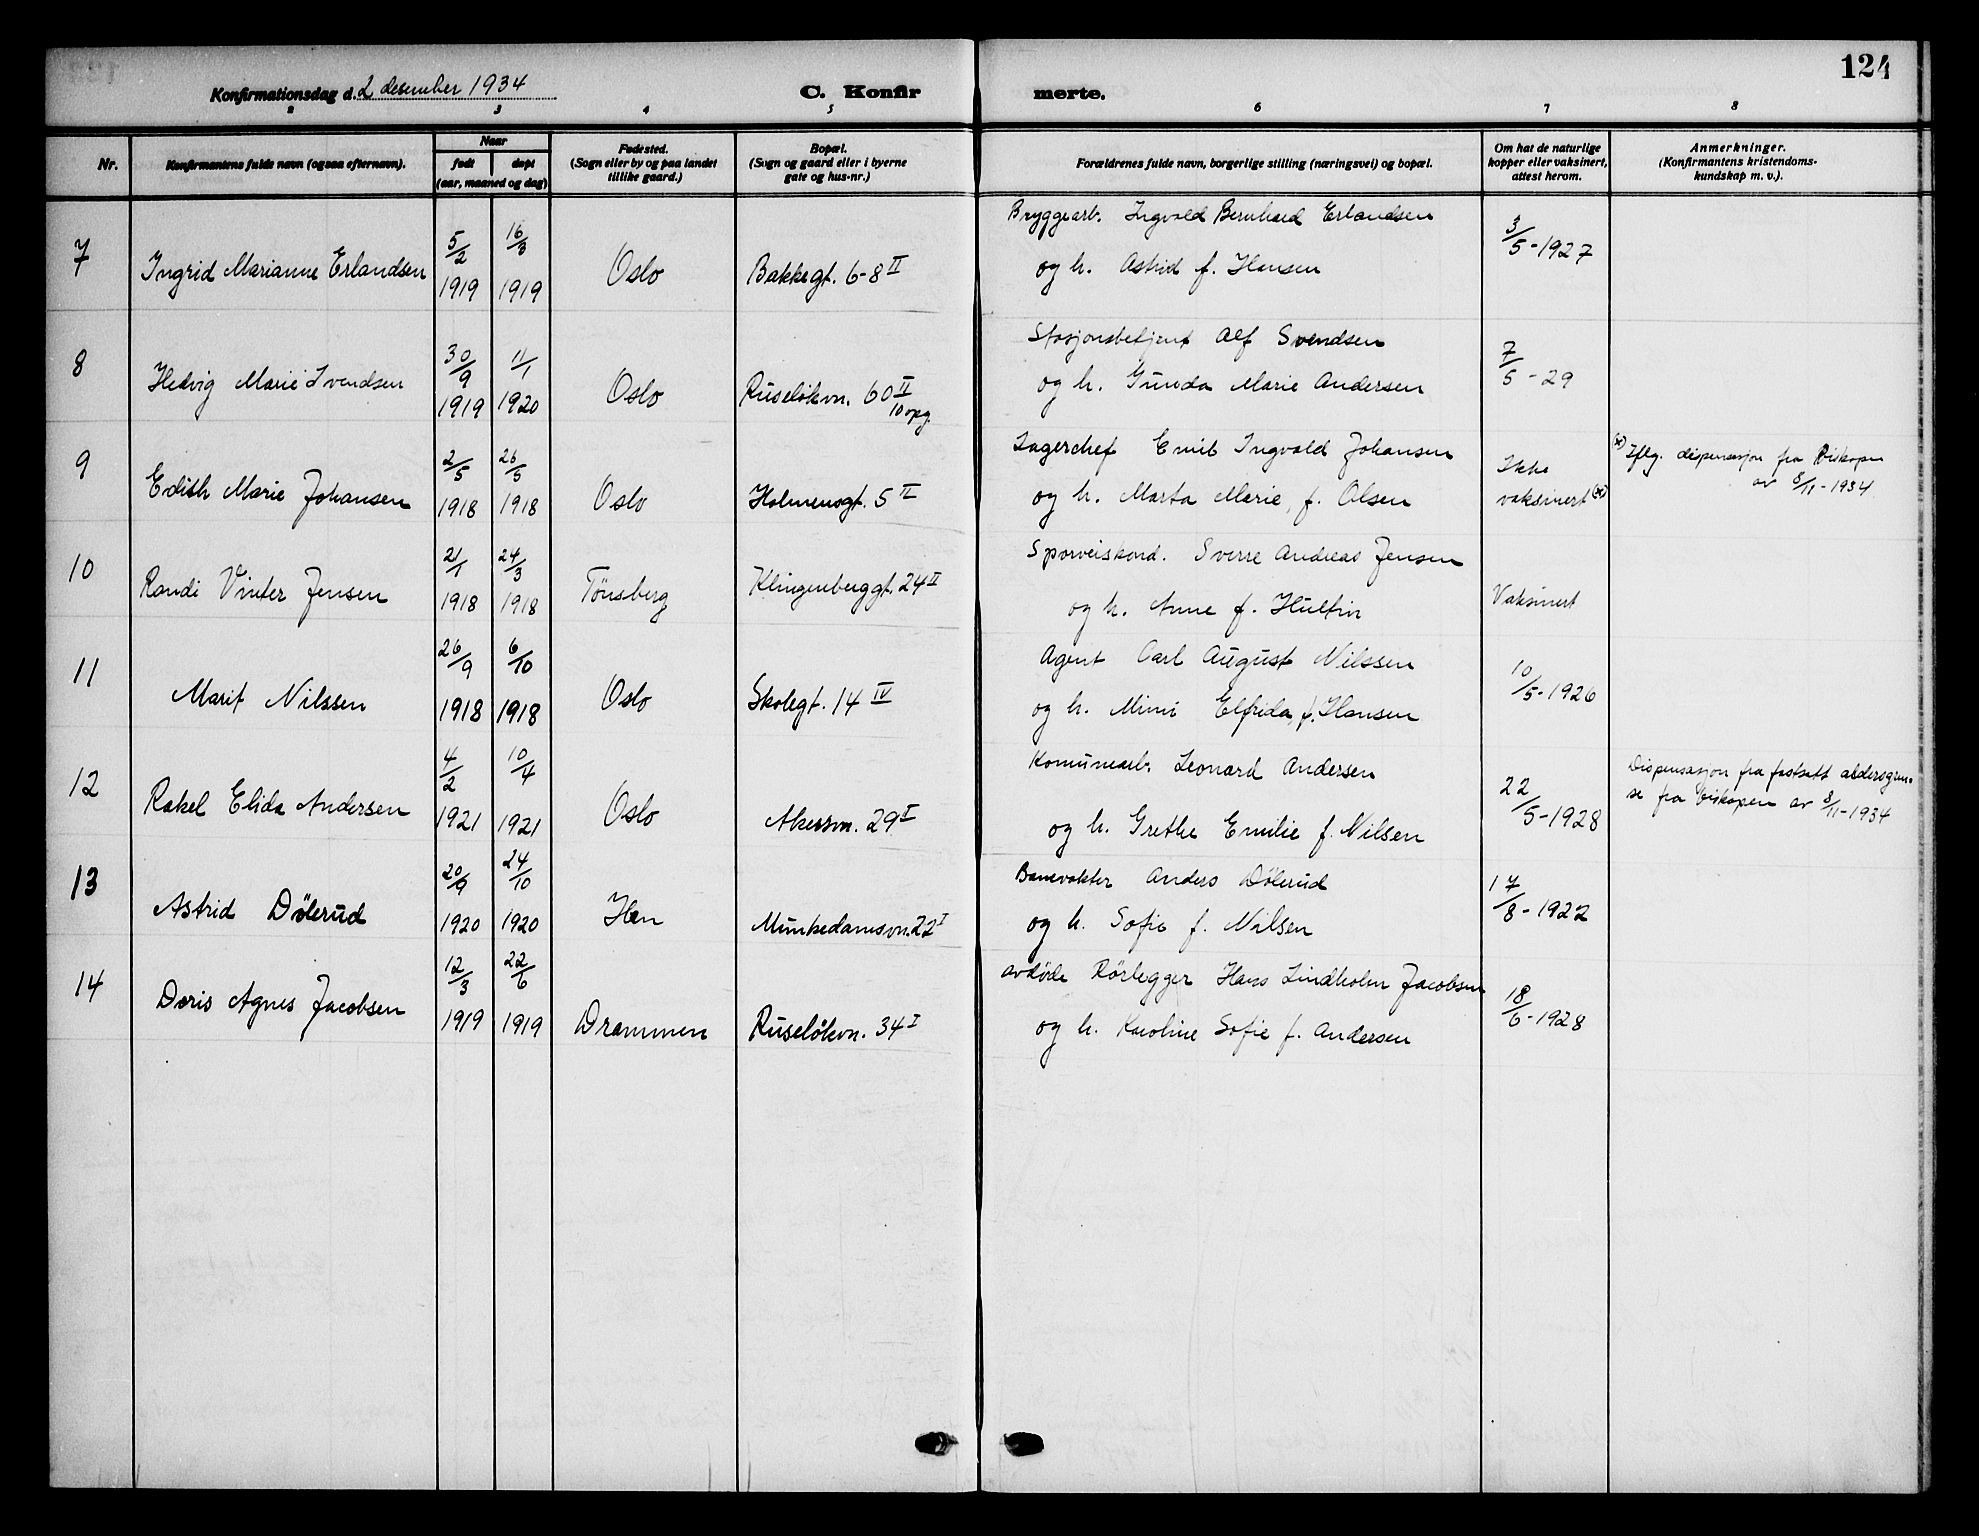 124
Konfirmationsdag d. 2 desember 1934
C. Konfirmerte.
2 3 4 5 6 7 8
Nr.
Konfirmantens fulde navn (ogsaa efternavn).
Naar
født
døpt
(aar, maaned og dag)
Fødested.
(Sogn eller by og paa landet
tillike gaard.)
Bopæl.
(Sogn og gaard eller i byerne
gate og hus-nr.)
Forældrenes fulde navn, borgerlige stilling (næringsvei) og bopæl.
Om hat de naturlige
kopper eller vaksinert,
attest herom.
Anmerkninger.
(Konfirmantens kristendoms-
kundskap m. v.).
7 Ingrid Marianne Erlandsen 5/2 1919 16/3 1919 Oslo Bakkegt. 6-8 II
Bryggearb. Ingvald Bernhard Erlandsen
og h. Astrid f. Hansen
3/5-1927
8 Hedvig Marie Svendsen 30/9 1919 11/1 1920 Oslo Ruseløkvn. 60 II
10 opg.
Stasjonsbetjent Alf Svendsen
og h. Gunda Marie Andersen
7/5-29
9 Edith Marie Johansen 2/5 1918 26/5 1918 Oslo Holmensgt. 5 II
Lagerchef Emil Ingvald Johansen
og h. Marta Marie, f. Olsen
Ikke
vaksinert (x)
(x) Iflg. dispensasjon fra Biskopen
av 8/11-1934
10 Randi Vinter Jensen 21/1 1918 24/3 1918 Tönsberg Klingenberggt. 24 II
Sporveiskond. Sverre Andreas Jensen
og h. Anne f. Hultin
Vaksinert
11 Marit Nilssen 26/9 1918 6/10 1918 Oslo Skolegt. 14 IV
Agent Carl August Nilssen
og h. Mimi Elfrida, f. Hansen
10/5-1926
12 Rakel Elida Andersen 4/2 1921 10/4 1921 Oslo Akersvn. 29 I
Komunearb. Leonard Andersen
og h. Grethe Emilie f. Nilsen
22/5-1928
Dispensasjon fra fastsatt aldersgren-
se fra biskopen av 8/11-1934
13 Astrid Dölerud 20/9 1920 24/10 1920 Hen Munkedamsvn. 22 I
Banevakter Anders Dölerud
og h. Sofie f. Nilsen
17/8-1922
14 Doris Agnes Jacobsen 12/3 1919 22/6 1919 Drammen Ruseløkvn. 34 I
avdöde Rörlegger Hans Lindholm Jacobsen
og h. Karoline Sofie f. Andersen
18/6-1928